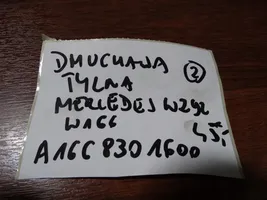 DMUCHAWA ②
TYLNA
MERCEDES W292
W166 45,-
A166 830 1600